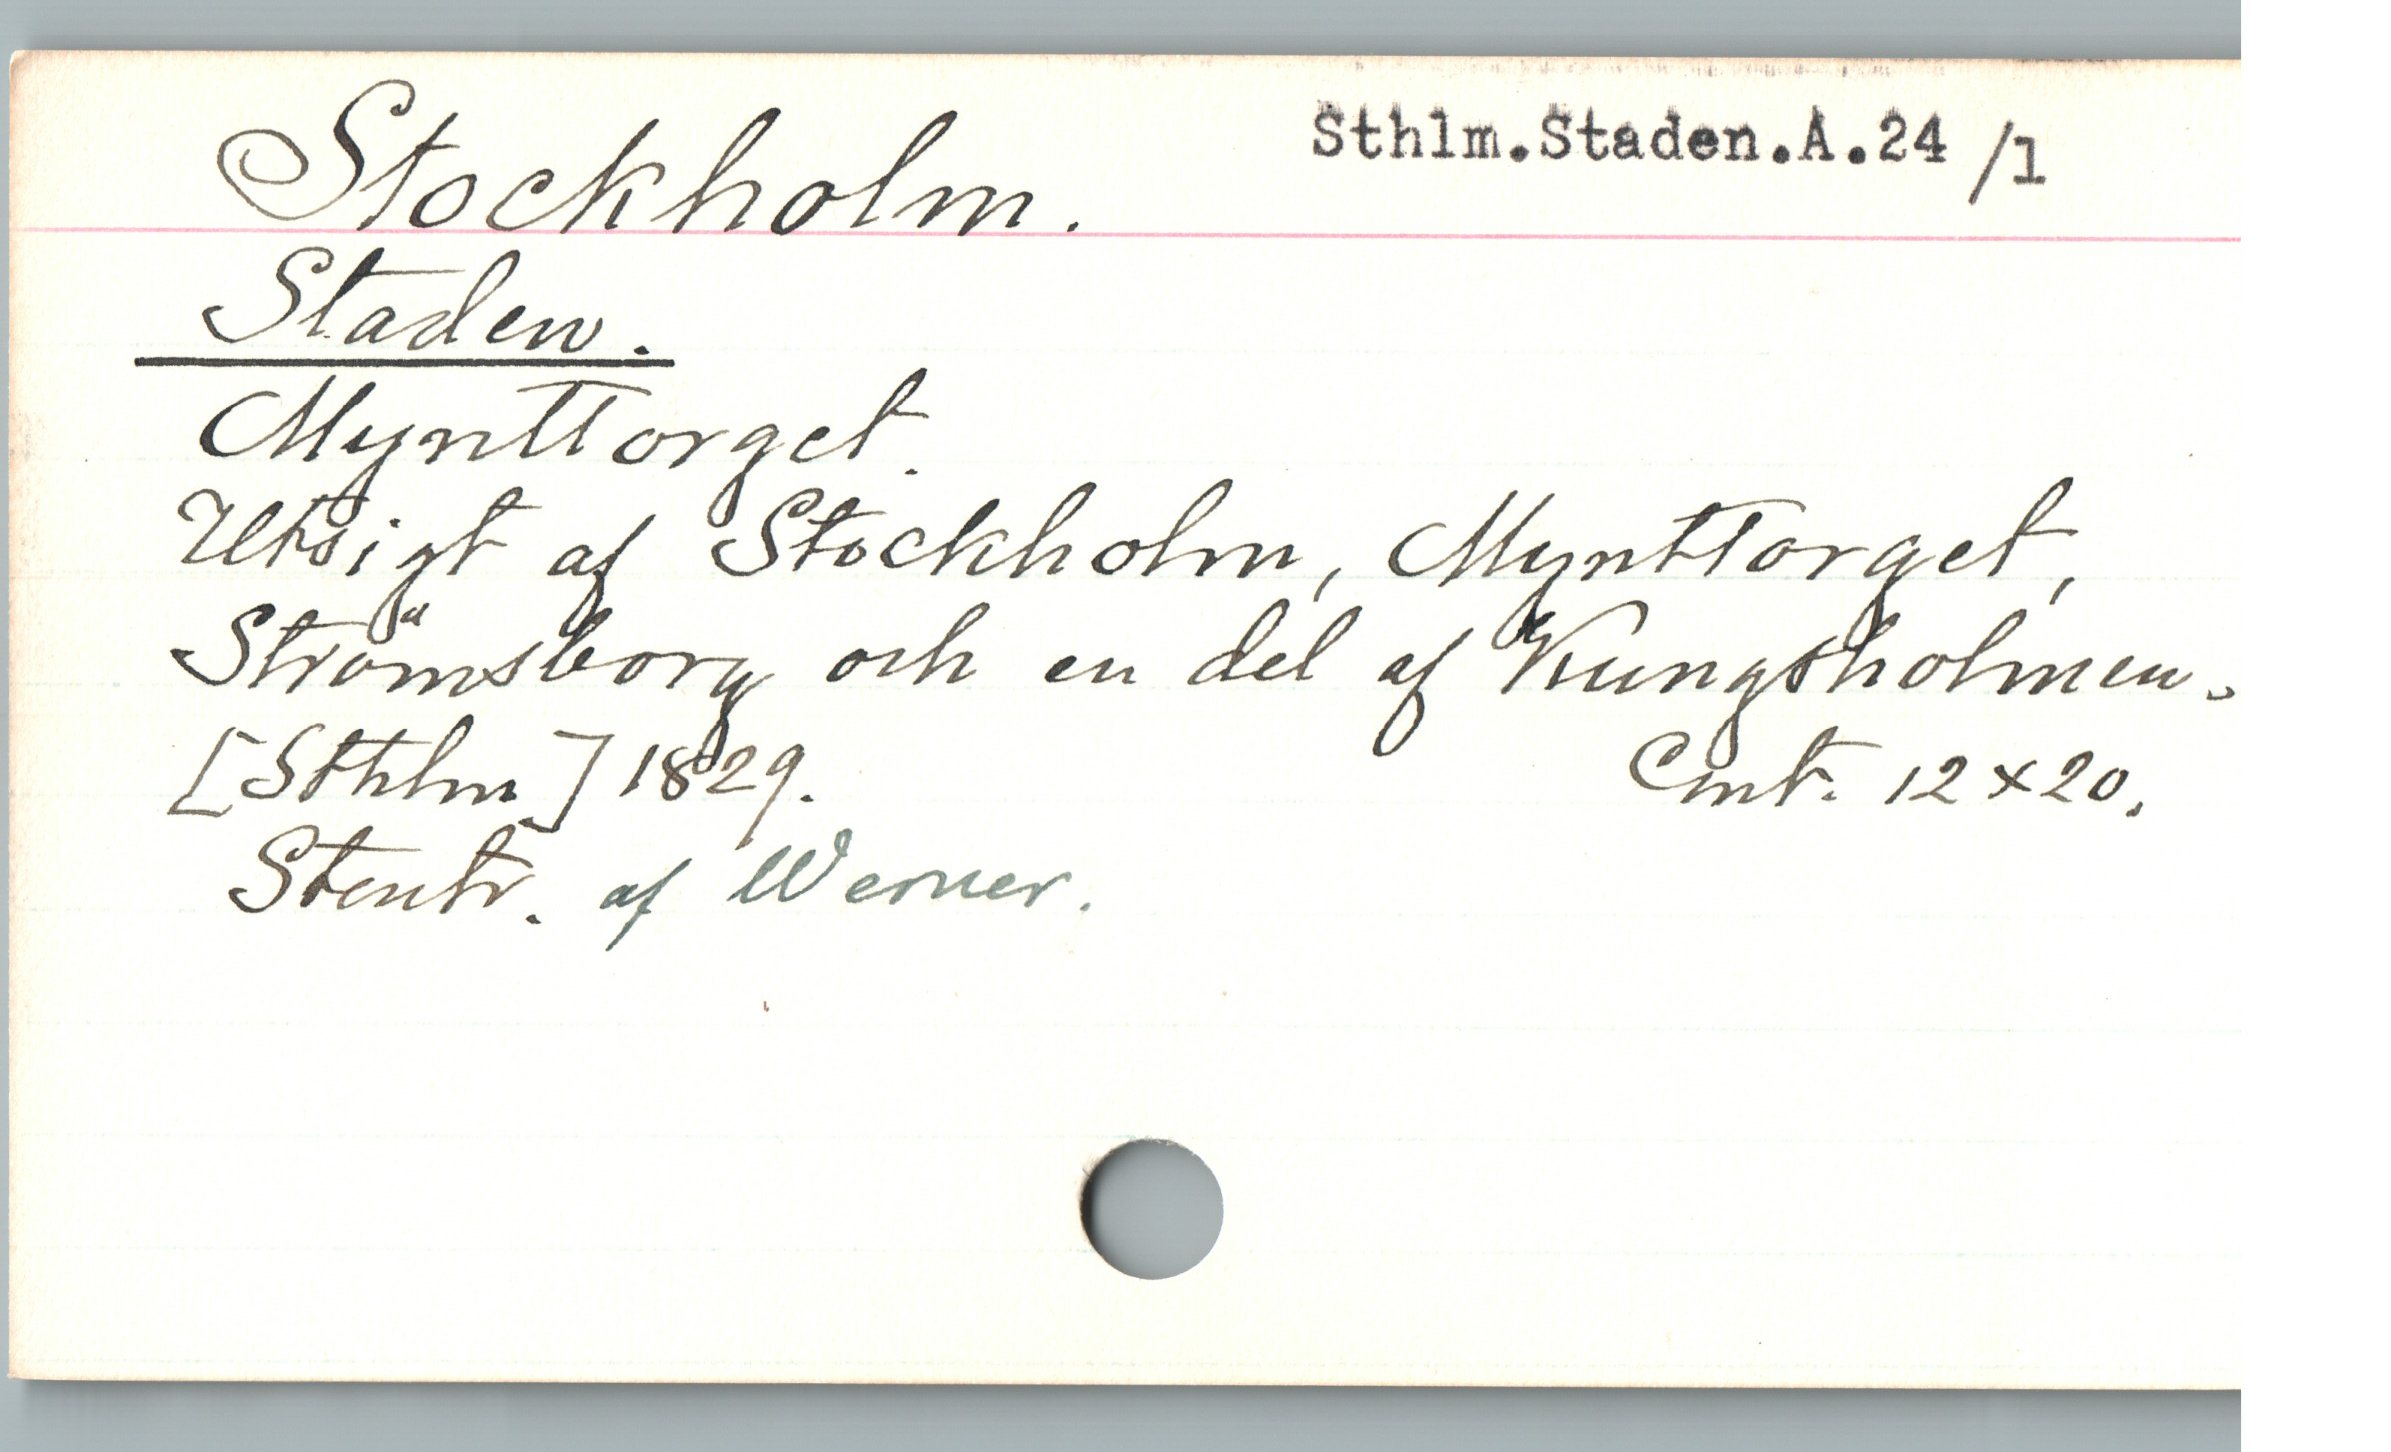 Stockholm.
Sthlm.Staden.A.24 /1
Staden.
Mynttorget.
Utsigt af Stockholm, Mynttorget,
Strömsborg och en del af Kungsholmen.
[Sthlm] 1829. Cmt. 12×20.
Stentr. af Werner.